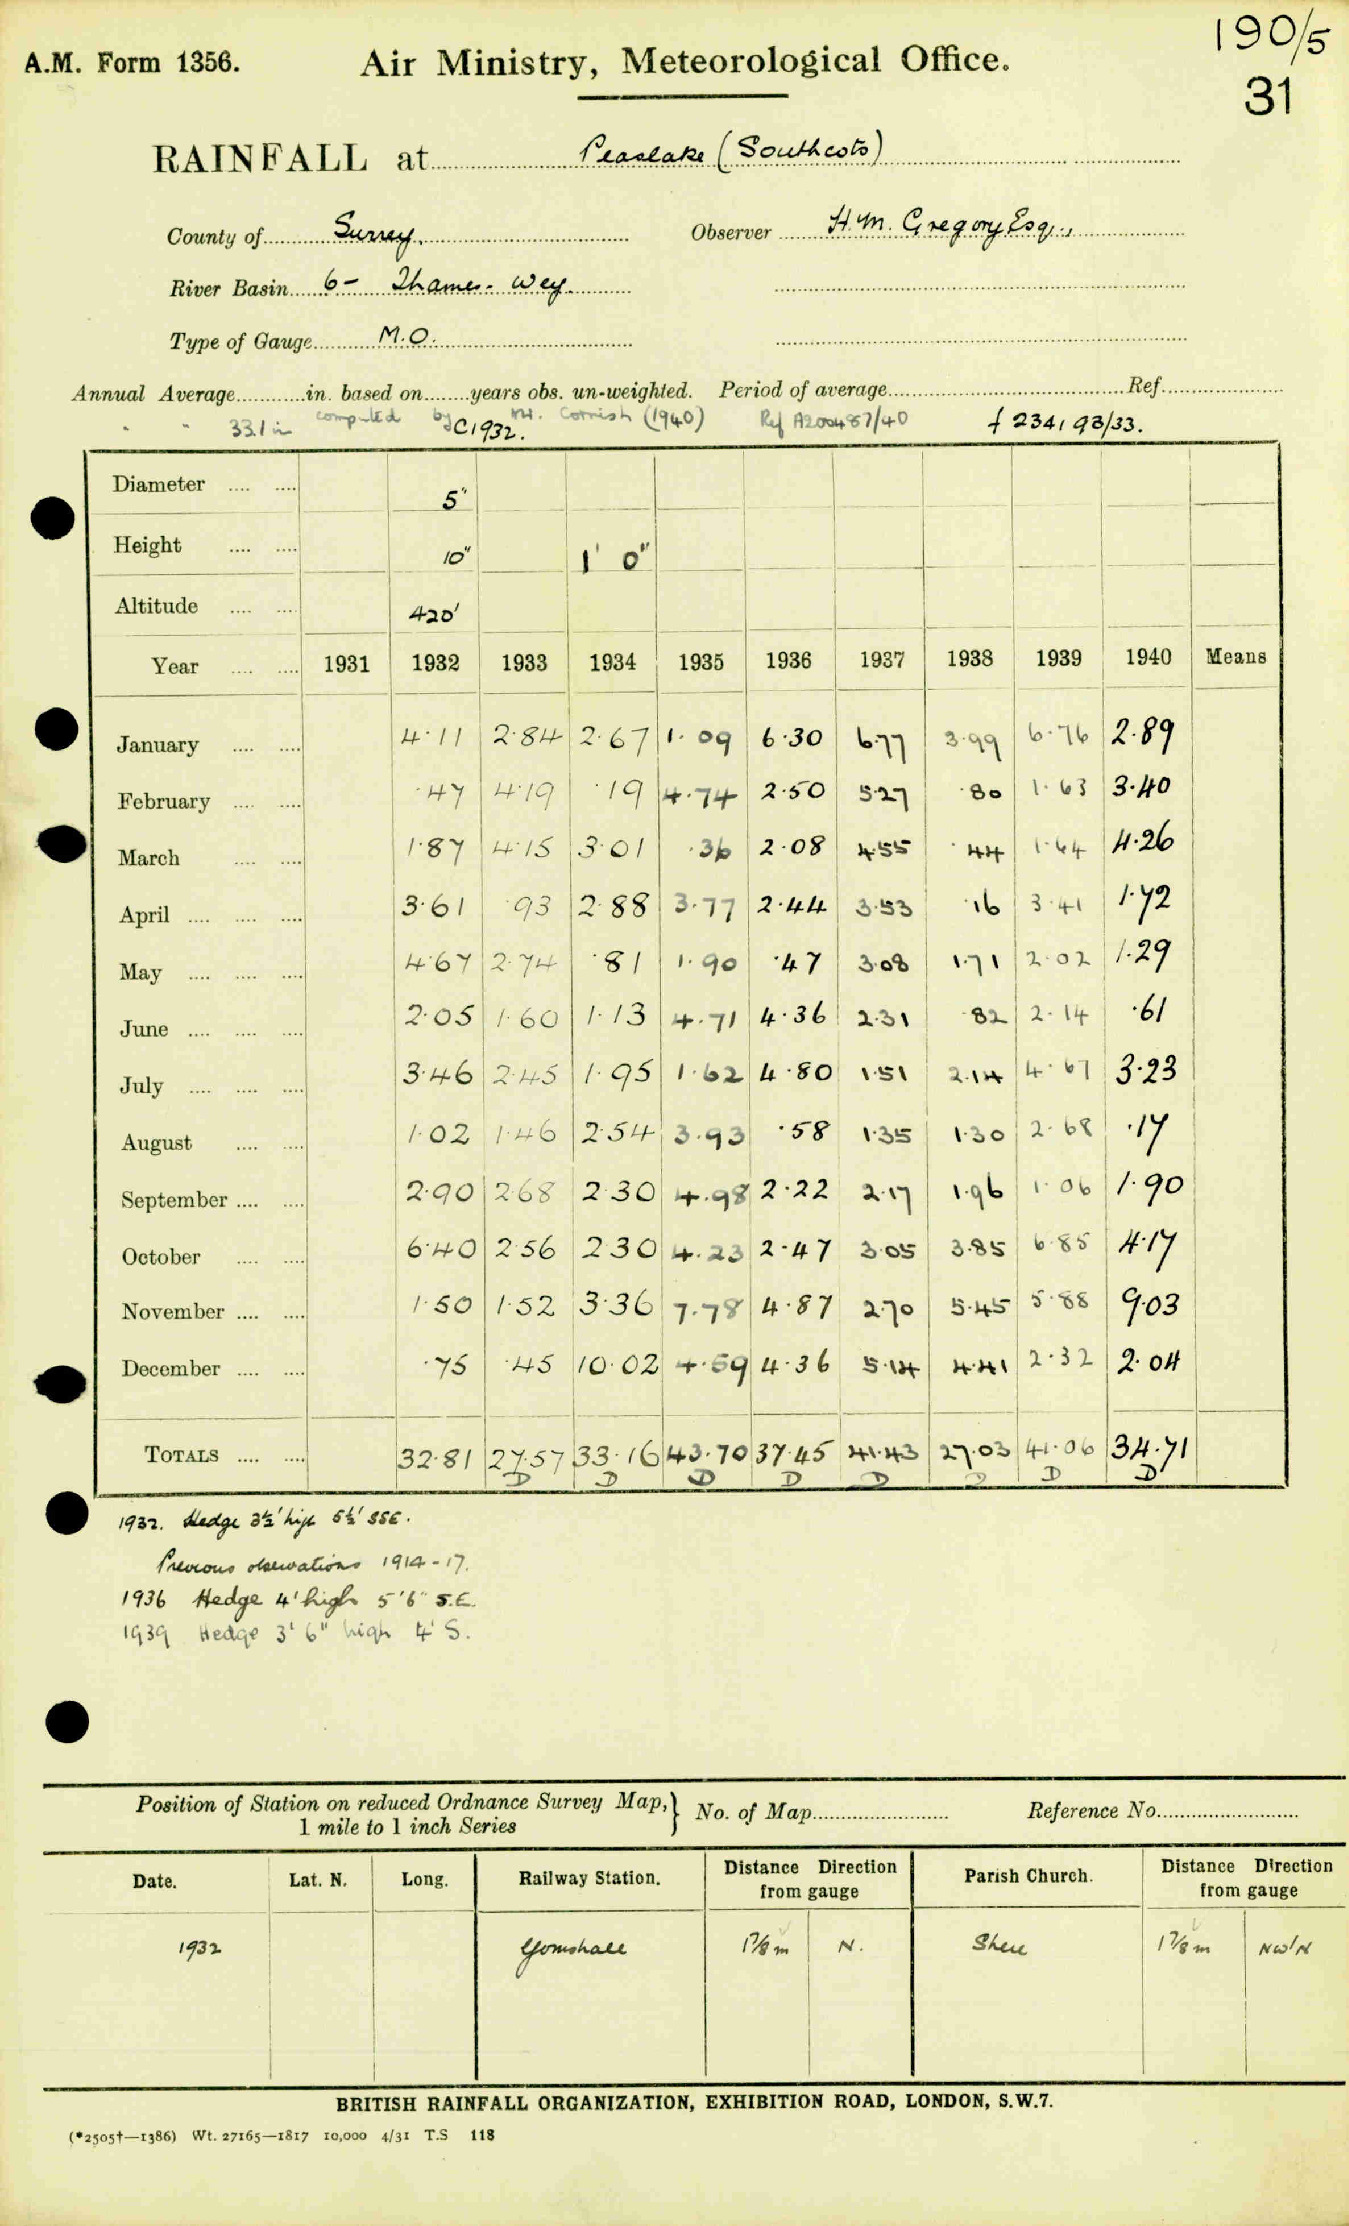 190/5
A.M. Form 1356. Air Ministry, Meteorological Office.
31
RAINFALL at Peaslake (Southcots)
County of Surrey. Observer H.M. Gregory Esq.,
River Basin 6- Thames- Wey.
Type of Gauge M.O.
Annual Average in. based on years obs. un-weighted. Period of average Ref.
" " 33.1 in computed by Mr. Cornish (1940) Ref A200487/40
C1932. f 234,93/33.
Diameter 5"
Height 10" 1' 0"
Altitude 420'
Year 1931 1932 1933 1934 1935 1936 1937 1938 1939 1940 Means
January 4·11 2·84 2·67 1·09 6·30 6·77 3·99 6·76 2·89
February ·47 4·19 ·19 4·74 2·50 5·27 ·80 1·63 3·40
March 1·87 4·15 3·01 ·36 2·08 4·55 ·44 1·64 4·26
April 3·61 ·93 2·88 3·77 2·44 3·53 ·16 3·41 1·72
May 4·67 2·74 ·81 1·90 ·47 3·08 1·71 2·02 1·29
June 2·05 1·60 1·13 4·71 4·36 2·31 ·82 2·14 ·61
July 3·46 2·45 1·95 1·62 4·80 1·51 2·14 4·67 3·23
August 1·02 1·46 2·54 3·93 ·58 1·35 1·30 2·68 ·17
September 2·90 2·68 2·30 4·98 2·22 2·17 1·96 1·06 1·90
October 6·40 2·56 2·30 4·23 2·47 3·05 3·85 6·85 4·17
November 1·50 1·52 3·36 7·78 4·87 2·70 5·45 5·88 9·03
December ·75 ·45 10·02 4·59 4·36 5·14 4·41 2·32 2·04
TOTALS 32·81 27·57 33·16 43·70 37·45 41·43 27·03 41·06 34·71
D D D D D D D D
1932. Hedge 3½' high 5½' SSE.
Previous observations 1914-17.
1936 Hedge 4' high 5'6" S.E.
1939 Hedge 3' 6" high 4' S.
Position of Station on reduced Ordnance Survey Map,} No. of Map Reference No.
1 mile to 1 inch Series
Date. Lat. N. Long. Railway Station. Distance Direction from gauge Parish Church. Distance Direction from gauge
1932 Gomshall 1⅞ m N. Shere 1⅞ m NW'N
BRITISH RAINFALL ORGANIZATION, EXHIBITION ROAD, LONDON, S.W.7.
(*2505†—1386) Wt. 27165—1817 10,000 4/31 T.S 118